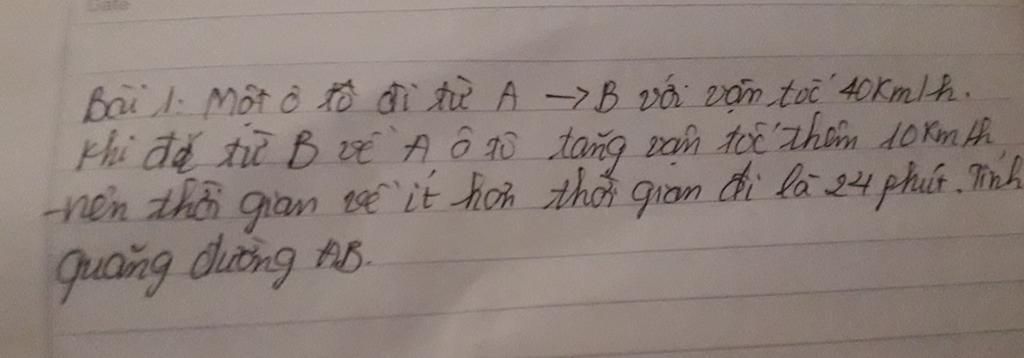 Date
Bài 1: Một ô tô đi từ A → B với vận tốc 40Km/h.
Khi đi từ B về A ô tô tăng vận tốc thêm 10Km/h
nên thời gian về ít hơn thời gian đi là 24 phút. Tính
quãng đường AB.